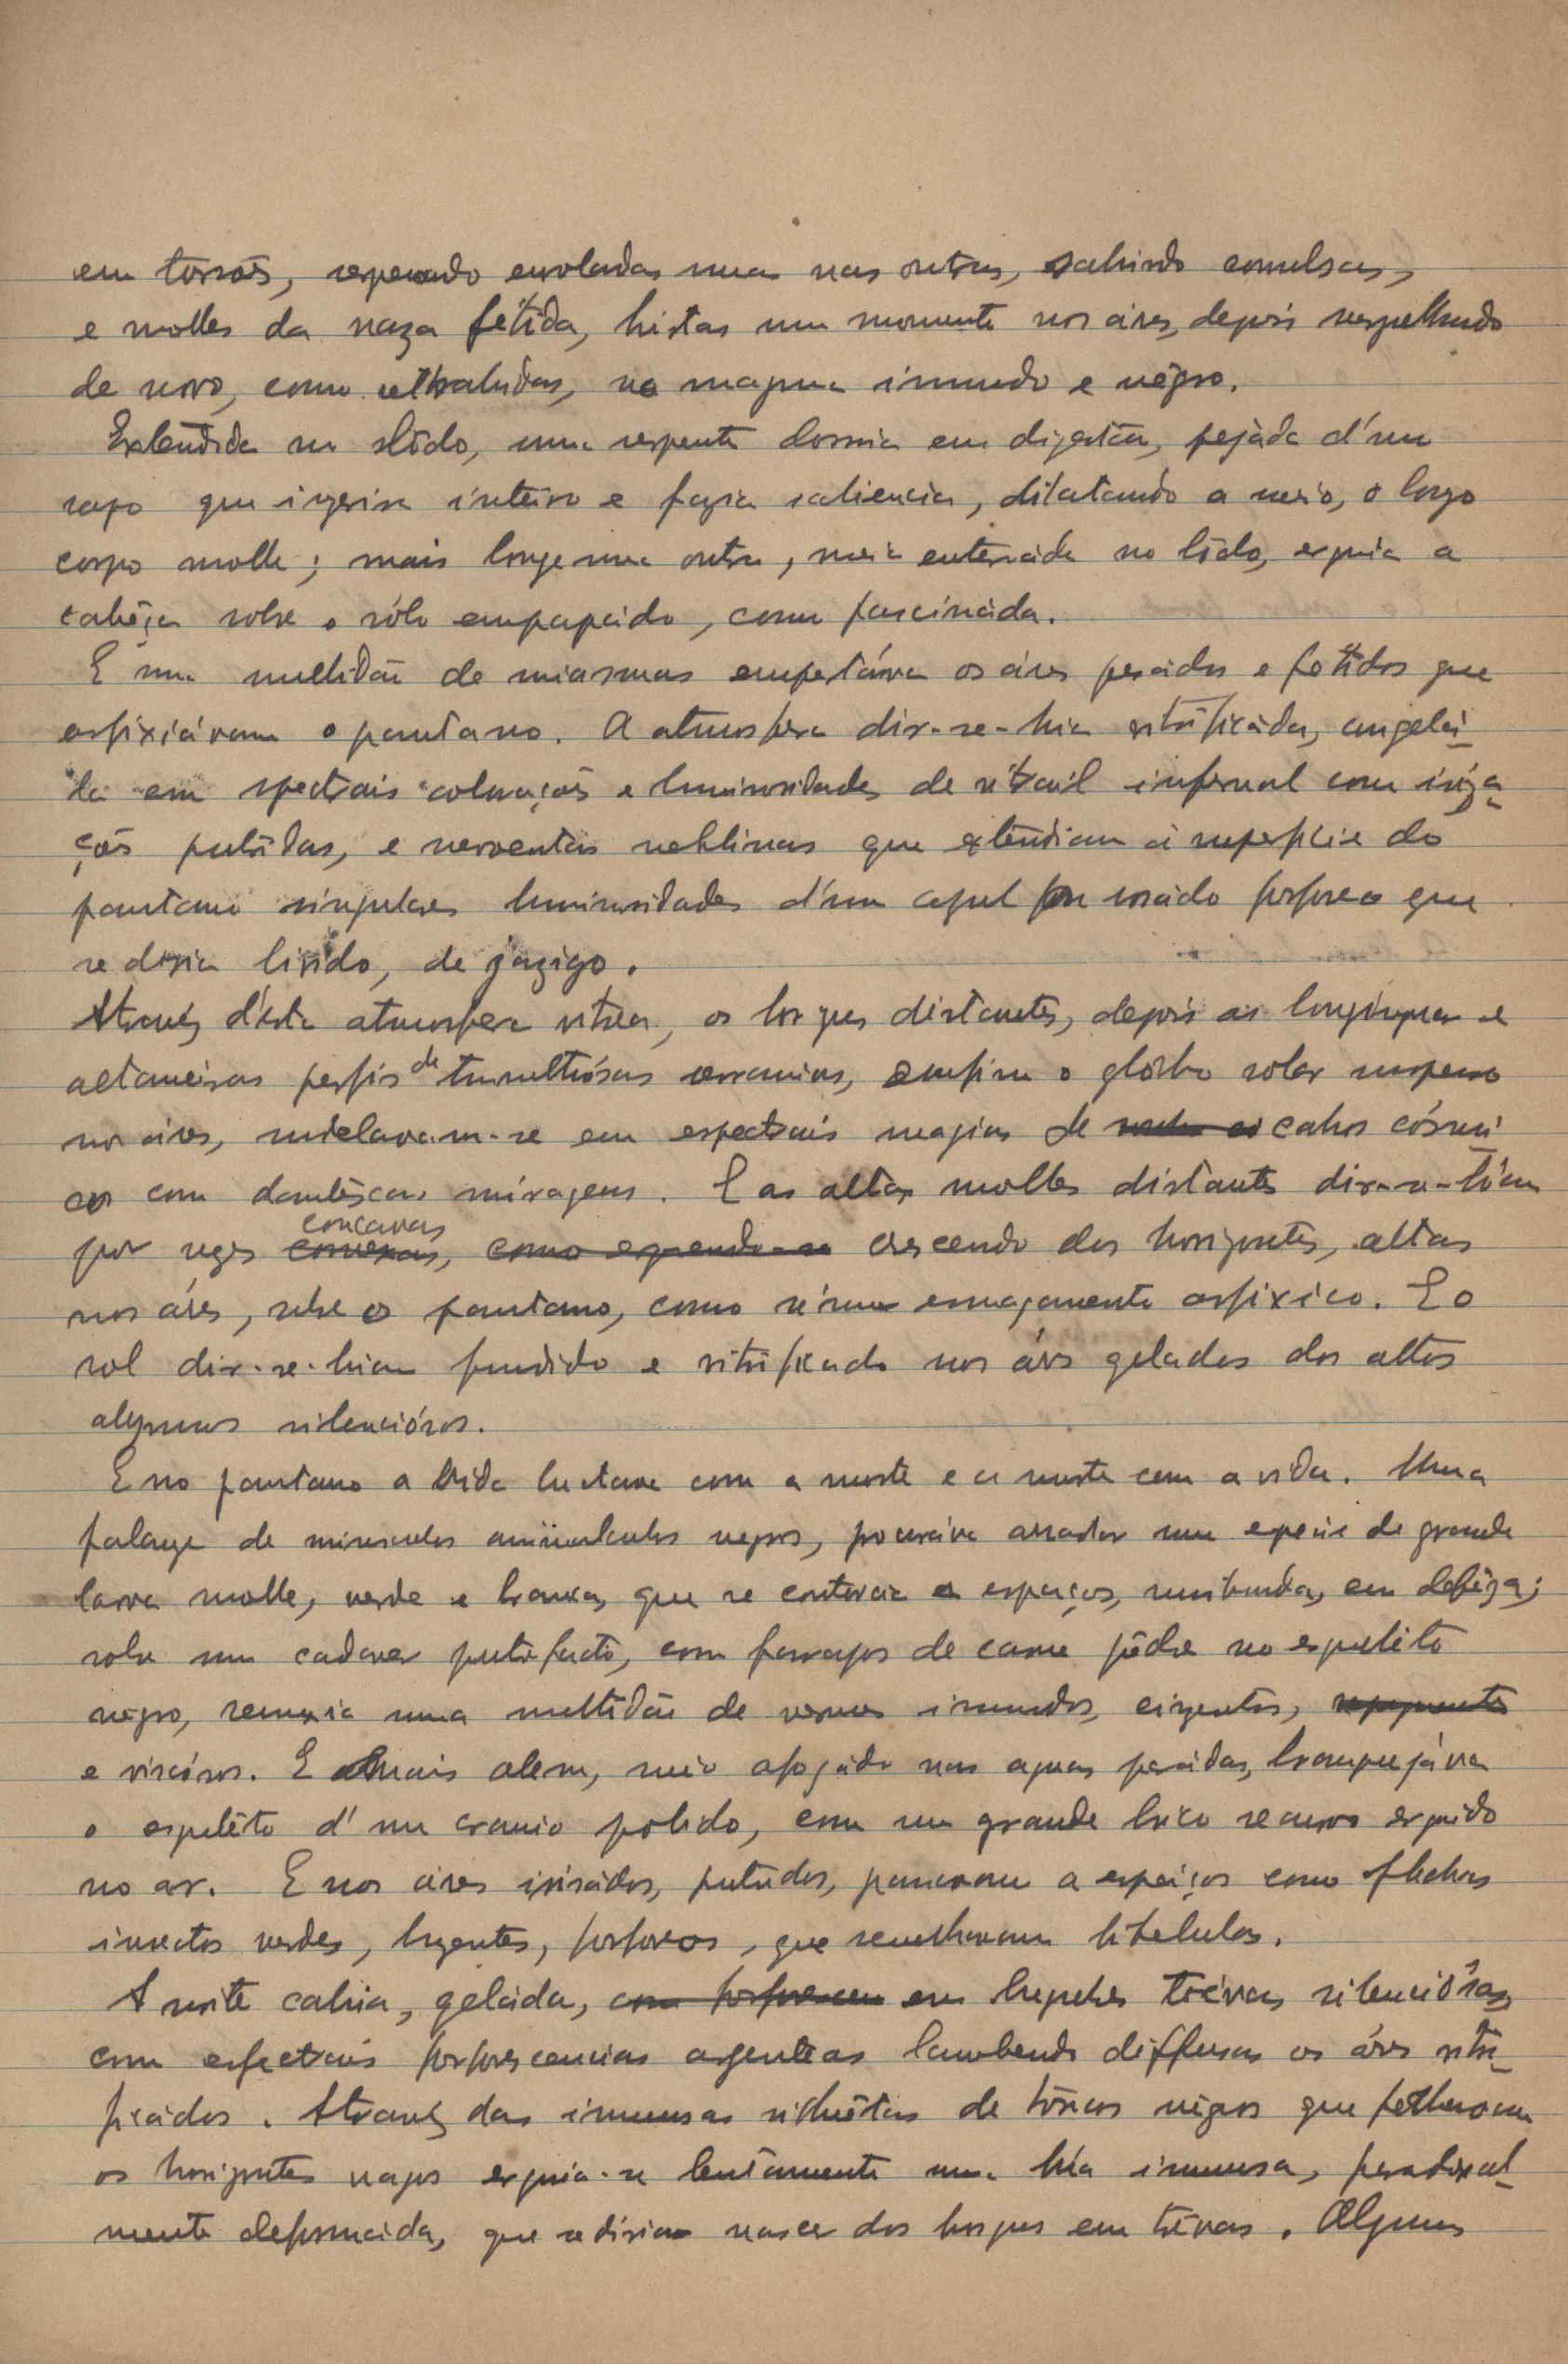 em torsões, serpeando enroladas umas nas outras, sahindo convulsas,
e molles da vaza fétida, hirtas um momento nos áres, depois mergulhando
de novo, como retrahidas, no magma immundo e negro.
Extendida no lôdo, uma serpente dormia em digestão, pejáda d'um
sapo que ingerira inteiro e fazia saliencia, dilatando a meio, o longo
corpo molle; mais longe uma outra, meia enterráda no lôdo, erguia a
cabêça sobre o sólo empapádo, como fascináda.
E uma multidão de miasmas empestáva os áres pesádos e fétidos que
asfixiávam o pantano. A atmosfera dir-se-hia vitrificáda, congelá-
da em spectrais colorações e luminosidades de vitrail infernal com iriza-
ções putridas, e nevoentas neblinas que extendiam á superficie do
pantano singulares luminosidades d'um azul rosádo fosforeo que
se diria livido, de jazigo.
Atravez d'esta atmosfera vitrea, os longes distantes, depois as longinquas e
altaneiras perfis de tumultuósas serranias, emfim o glôbo solar suspenso
nos áres, nivelavam-se em espectrais magias de cahos cósmi-
cos com dantêscas miragens. E as altas molles distantes dir-se-hiam
por vezes ~~convexas~~ concavas, ~~como erguendo-se~~ crescendo dos horizontes, altas
nos áres, sobre o pantano, como n'um esmagamento asfixico. E o
sol dir-se-hia fundido e vitrificado nos áres gelados dos altos
abysmos silenciósos.
E no pantano a vida luctava com a morte e a morte com a vida. Uma
falange de minusculos animalculos negros, procuráva arrastar uma especie de grande
larva molle, verde e branca, que se contorcia a espaços, moribunda, em defêza;
sobre um cadaver putrefacto, com farrapos de carne pôdre no esqueleto
negro, remexia uma multidão de vermes immundos, cinzentos, ~~repugnantes~~
e viscósos. E mais alem, meio afogádo nas aguas paradas, branquejáva
o esqueléto d'um craneo polido, com um grande bico recurvo erguido
no ar. E nos áres irisádos, putridos, passavam a espáços como flechas
insectos verdes, luzentes, fosforeos, que semelhavam libelulas.
A noite cahia, geláda, ~~com fosforescen~~ em lugubres trévas silenciósas,
com espectrais fosforescencias argenteas lambendo diffusas os áres vitri-
ficádos. Atravez das immensas silhuêtas de tôrsos nêgros que fechavam
os horizontes vagos erguia-se lentamente uma lúa immensa, paradoxal-
mente deformada, que se diria nascer dos bosques em trévas. Alguns